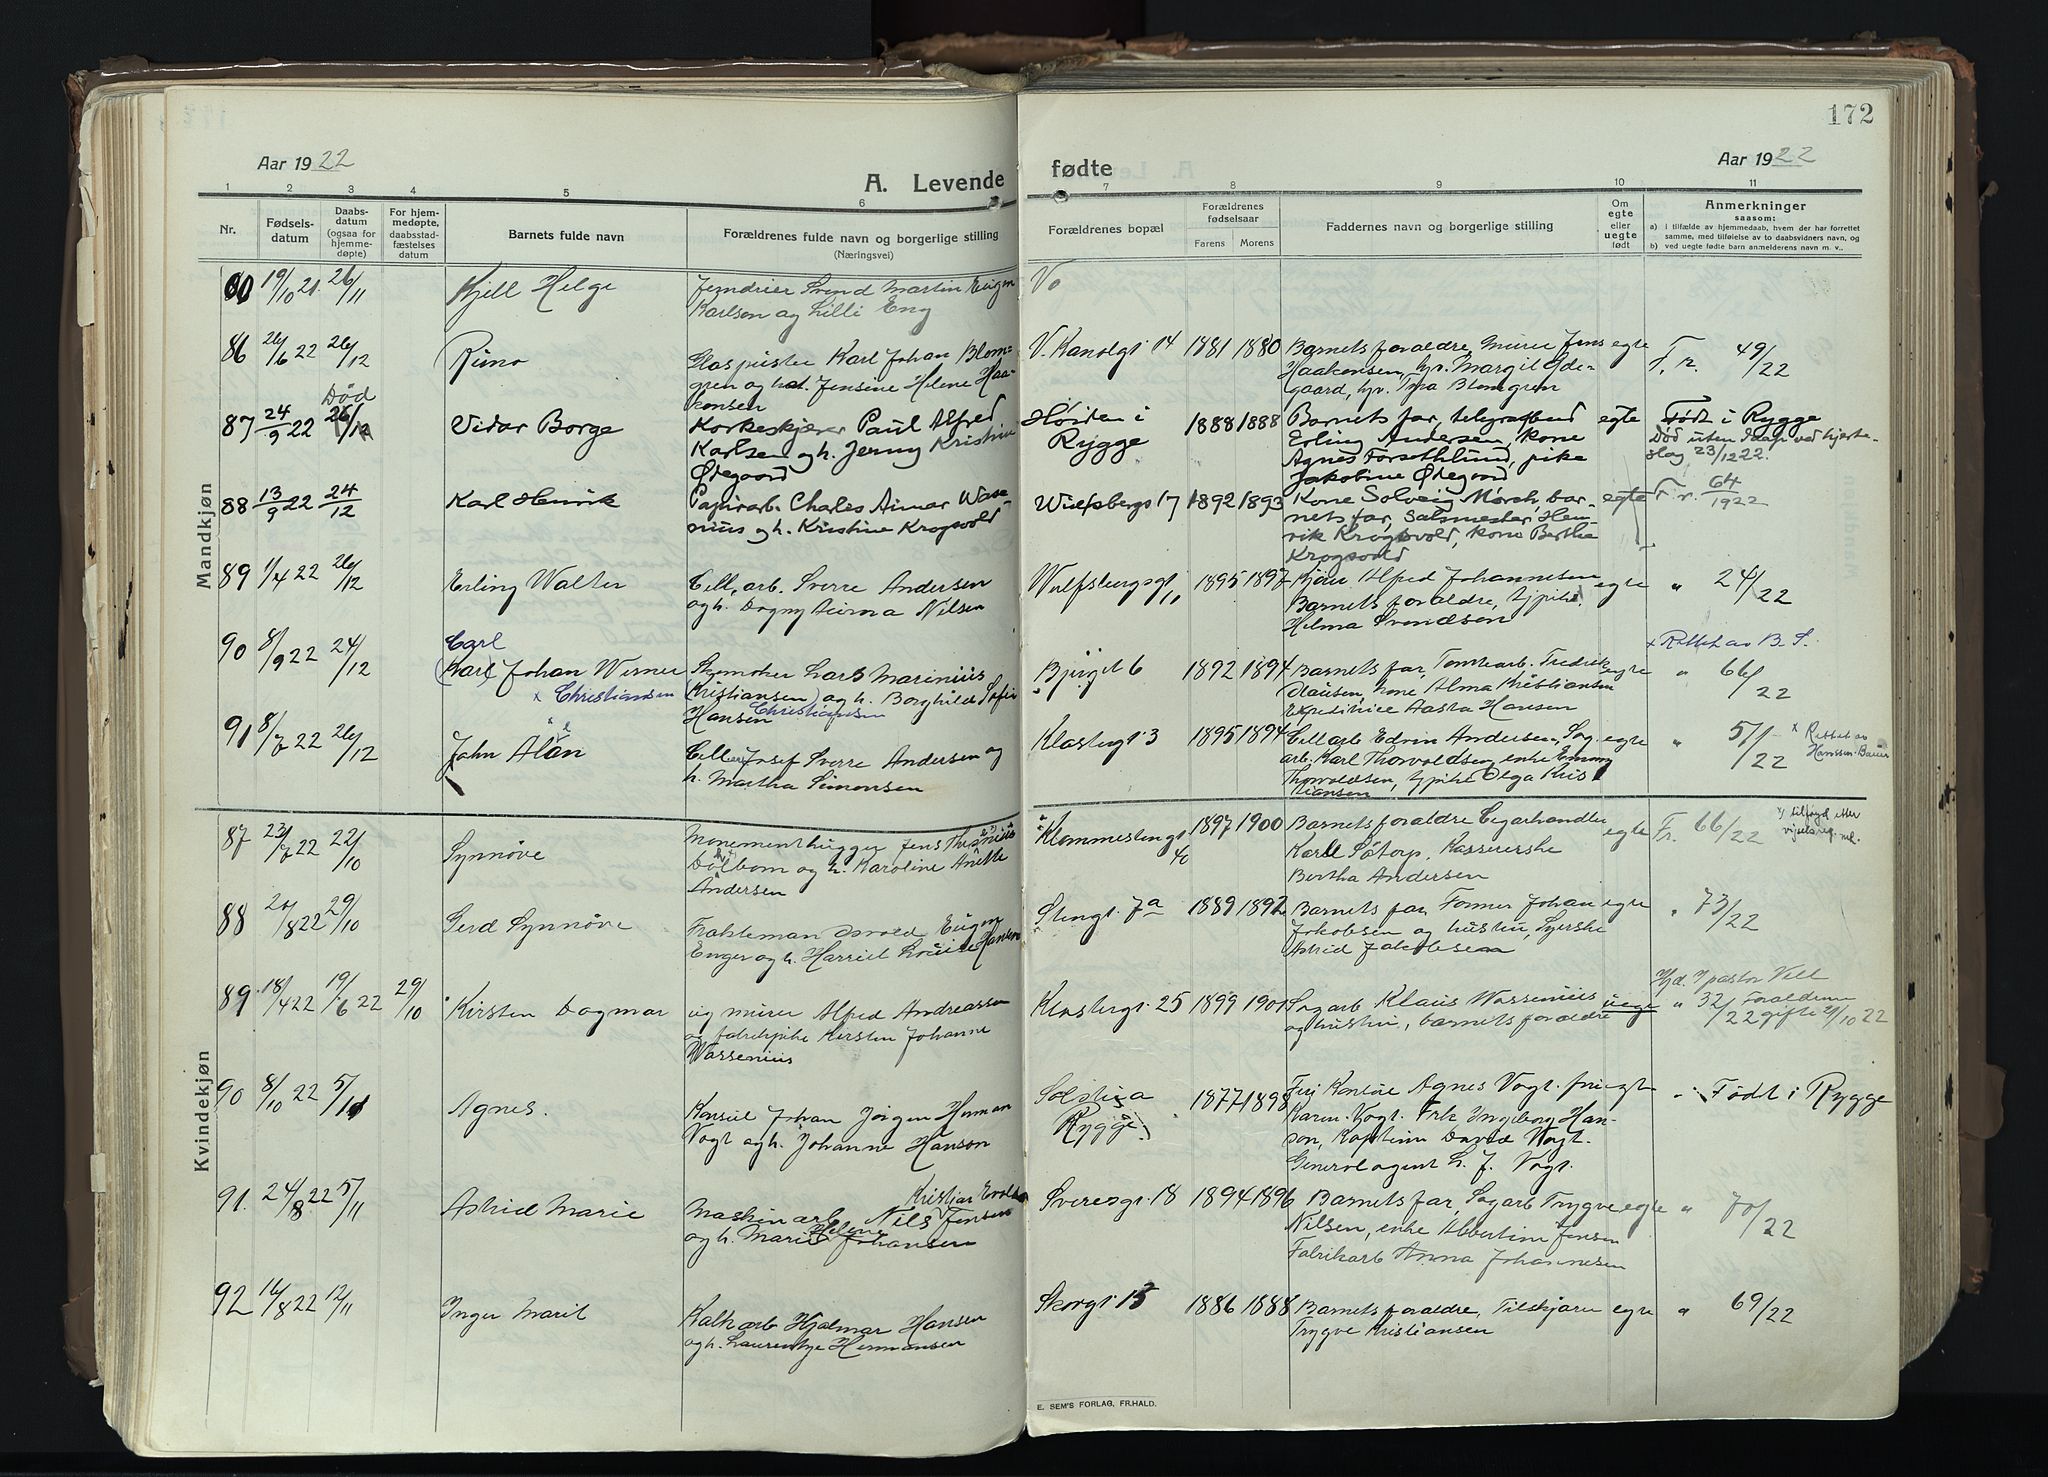 172
Aar 1922
A. Levende
fødte
Aar 1922
1 2 3 4 5 6 7 8 9 10 11
Nr.
Fødsels-
datum
Daabs-
datum
(ogsaa for
hjemme-
døpte)
For hjem-
medøpte,
daabsstad-
fæstelses
datum
Barnets fulde navn
Forældrenes fulde navn og borgerlige stilling
(Næringsvei)
Forældrenes bopæl
Forældrenes
fødselsaar
Farens Morens
Faddernes navn og borgerlige stilling
Om
egte
eller
uegte
født
Anmerkninger
saasom:
a) i tilfælde av hjemmedaab, hvem der har forrettet
samme, med tilføielse av to daabsvidners navn, og
b) ved uegte fødte barn anmelderens navn m. v..
Mandkjøn
19/10 21. 26/11 Kjell Helge
Svend Martin Eugen
Karlson og Lilli Eng
Vo
86 26/6 22 26/12
Karl Johan Blom-
gren og hst. Jensine Helene Haa-
konsen
V. Kanalgt 14 1881 1880
Barnets forældre, Murer Jens
Haakensen, hv. Margit Øde-
gaard, hv. Blomgren
egte F. r. 49/22
Død
87 24/9 22 26/12 Vidar Borge
Korkeskjærer Paul Alfred
Karlsen og h. Jenny Kristine
Ødegaard
Høiden i
Rygge
1888 1888
Barnets far, telegrafbud
Erling Andersen, kone
Agnes Forsethlund, pike
Jakobine Ødegaard
egte
Født i Rygge
Død uten daap ved hjerte-
slag 23/12 22.
88 13/9 22 24/12 Karl Henrik
Papirarb. Charles Aimar Wasse-
nius og h. Kristine Krogsvold
Wulfsbergs 17 1892 1893
Kone Solveig Mørch, bar-
nets far, Salmester Hen-
rik Krogsvold, kone Berthe
Krogsvold
egte F. r. 64/1922
89 1/4 22 26/12 Erling Walter
Cell. arb. Sverre Andersen
og h. Dagny Nilsen
Wulfsbergsgt 11 1895 1897
Alfred Johannesen
Barnets forældre, tjpike
Helma Svendsen
egte " 24/22
90 8/9 22 24/12
Carl
(Karl) Johan Werner
x Christiansen
Skomaker Lars Marinius
(Kristiansen) og h. Borghild Sofie
Hansen Christiansen
Bjerget 6 1892 1894
Barnets far, Tomtearb. Fredrik
Clausen, kone Alma Kristiansen
Expeditrice Aasta Hansen
egte
x Rettet av B. S.
" 66/22
91 8/7 22 26/12 John Alan
Cell Josef Sverre Andersen og
h. Martha Simonsen
Klostergt 3 1895 1894
Cellarb Edvin Andersen, Sag-
arb. Karl Thorvaldsen, enke Emmy
Thorvaldsen, tjpike Olga Kris
tiansen
egte " 57/22
x Rettet av
Hanssen-Bauer
Kvindekjøn
87 23/7 22 22/10 Synnøve
Monementhugger Jens
Dalbom og h. Karoline Anette
Andersen
40
1897 1900
Barnets forældre Cigarhandler
Karl Søtorp, Kassererske
Bertha Andersen
egte Fr. 66/22
x) tilføyd etter
vigselsreg. ml.
88 8 22 29/10 Gerd Synnøve
Eugen
Enger og h. Harriet Louise Hansen
Stengt. 7a 1889 1892
Barnets far, Former Johan
Jakobsen og hustru, Syerske
Astrid Jakobsen
egte " 73/22
89 18/4 22 19/6 22 29/10 Kirsten Dagmar
ug murer Alfred Andreassen
og fabrikpike Kirsten Johanne
Wassenius
Klostergt. 25 1899 1901
Sagarb Klaus Wassenius
og hustru, barnets forældre
uegte
Hjd. v/ pastor Vell
" 32/22 Forældrene
gifte 29/10 22
90 8/10 22 5/11 Agnes.
Konsul Johan Jørgen Herman
Vogt og h. Johanne Hanson
Solstua
Rygge.
1877 1898
Frue Agnes Vogt. frue
Karen Vogt. Frk Ingeborg Han-
son, Kaptein David Vogt.
Generalagent L. J. Vogt.
egte " Født i Rygge
91. 24/8 22 5/11 Astrid Marie
Kristian Evald
Maskinarb Nils Jensen
og h. Marie Helene Johansen
Sveresgt. 18 1894 1896
Barnets far, Sagarb Trygve
Nilsen, enke Albertine Jensen
Fabrikarb Anna Johannesen
egte " 70/22
92 16/8 22 12/11 Inger Marit
Kalkarb Hjalmar Hansen
og h. Laurentze Hermansen
Skorgt 15 1886 1888
Barnets forældre, Tilskjærer
Trygve Kristiansen
egte " 69/22
E. SEM'S FORLAG, FR.HALD.